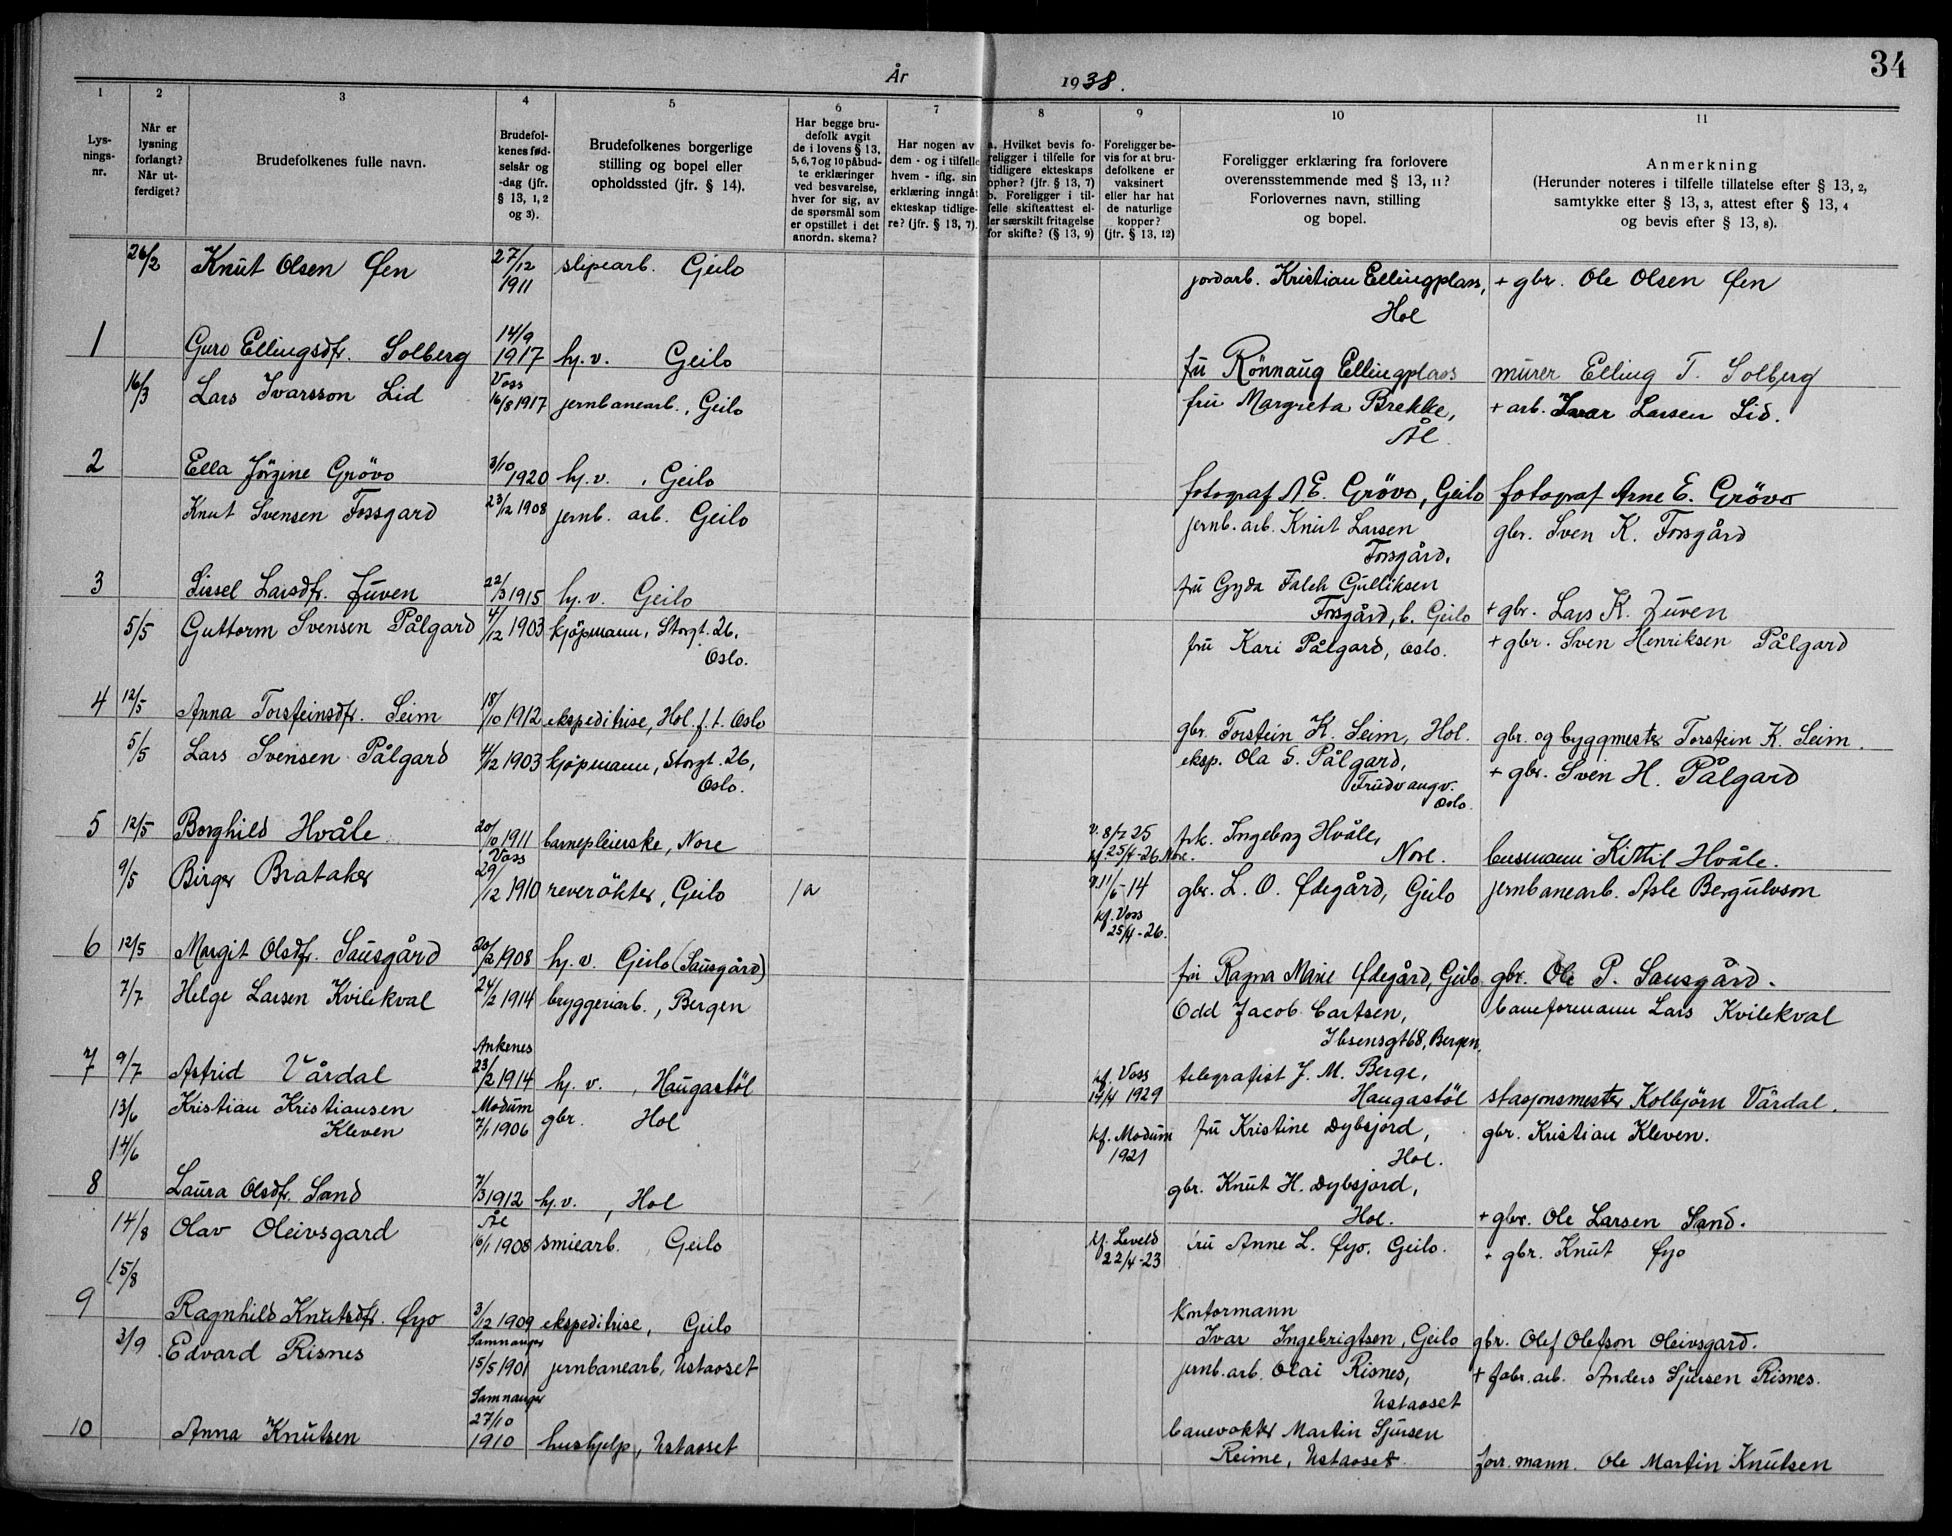 34
År 1938.
1
2
3
4
5
6
7
8
9
10
11
Lys-
nings-
nr.
Når er
lysning
forlangt?
Når ut-
ferdiget?
Brudefolkenes fulle navn.
Brudefol-
kenes fød-
selsår og
-dag (jfr.
§ 13, 1, 2
og 3).
Brudefolkenes borgerlige
stilling og bopel eller
opholdssted (jfr. § 14).
Har begge bru-
defolk avgit
de i lovens § 13,
5, 6, 7 og 10 påbud-
te erklæringer
ved besvarelse,
hver for sig, av
de spørsmål som
er opstillet i det
anordn. skema?
Har nogen av
dem - og i tilfelle
hvem - iflg. sin
erklæring inngåt
ekteskap tidlige-
re? (jfr. § 13, 7).
a. Hvilket bevis fo-
religger i tilfelle for
tidligere ekteskaps
ophør? (jfr. § 13, 7)
b. Foreligger i til-
felle skifteattest el-
ler særskilt fritagelse
for skifte? (§ 13, 9)
Foreligger be-
vis for at bru-
defolkene er
vaksinert
eller har hat
de naturlige
kopper?
(jfr. § 13, 12)
Foreligger erklæring fra forlovere
overensstemmende med § 13, 11?
Forlovernes navn, stilling
og bopel.
Anmerkning
(Herunder noteres i tilfelle tillatelse efter § 13, 2,
samtykke efter § 13, 3, attest efter § 13, 4
og bevis efter § 13, 8).
26/2 Knut Olsen Øen 27/12 1911 slipearb. Geilo jordarb. Kristian Ellingplass, + gbr. Ole Olsen Øen
Hol
1 Guro Ellingsdtr. Solberg 14/9 1917 hj.v. Geilo fru Rönnaug Ellingplass murer Elling T. Solberg
16/3 Lars Ivarsson Lid Voss 16/8 1917 jernbanearb., Geilo fru Margreta Brekke, + arb. Ivar Larsen Lid.
Ål.
2 Ella Jörgine Grövo 3/10 1920 hj.v., Geilo fotograf A E. Grövo, Geilo fotograf Arne E. Grövo
Knut Svensen Fossgard 23/12 1908 jernb. arb. Geilo jernb. arb. Knut Larsen gbr. Sven K. Fossgård
Fossgård,
3 Sissel Larsdtr. Zuven 22/3 1915 hj.v. Geilo fru Gyda Falch Gulliksen
Fossgård, b. Geilo + gbr. Lars K. Zuven
5/5 Guttorm Svensen Pålgard 4/12 1903 kjöpmann, Storgt. 26, fru Kari Pålgard, Oslo. + gbr. Sven Henriksen Pålgard
Oslo.
4 12/5 Anna Torsteinsdtr. Seim 18/10 1912 ekspeditrise, Hol f.t. Oslo gbr. Torstein K. Seim, Hol. gbr. og byggmester Torstein K. Seim.
5/5 Lars Svensen Pålgard 4/12 1903 kjöpmann, Storgt. 26, eksp. Ola S. Pålgard, + gbr. Sven H. Pålgard
Oslo. Trudvangv. Oslo.
5 12/5 Borghild Hvåle 20/10 1911 barnepleierske, Nore v. 8/7 25 frk. Ingeborg Hvåle,
kf. 25/4-26 Nore. Nore. busmann Kittil Hvåle.
9/5 Birger Brataker Voss 29/12 1910 reverökter, Geilo 1a 11/6-14 gbr. L. O. Ødegård, Geilo jernbanearb. Asle Bergulvson
kf. Voss
25/4-26.
6 12/5 Margit Olsdtr. Sausgård 20/2 1908 hj.v. Geilo (Sausgård) fru Ragna Marie Ødegård, Geilo gbr. Ole P. Sausgård.
7/7 Helge Larsen Kvilekval 24/2 1914 bryggeriarb., Bergen Odd Jacob Carlsen, baneformann Lars Kvilekval
Ibsensgt 68, Bergen.
7 9/7 Astrid Vårdal Ankenes 23/2 1914 hj.v., Haugastöl kf. Voss 14/4 1929 telegrafist J. M. Berge,
Haugastöl stasjonsmester Kolbjörn Vårdal.
13/6 Kristian Kristiansen Modum 7/1 1906 gbr. Hol kf. Modum 1921 fru Kristine Dybsjord, gbr. Kristian Kleven.
14/6 Kleven Hol.
8 Laura Olsdtr. Sand 7/3 1912 hj.v., Hol gbr. Knut H. Dybsjord,
Hol. + gbr. Ole Larsen Sand.
14/8 Olav Oleivsgard Ål 16/1 1908 smiearb., Geilo kf. Leveld 22/4-23 fru Anne L. Øyo, Geilo. + gbr. Knut Øyo
15/8
9 Ragnhild Knutsdtr. Øyo 3/12 1909 ekspeditrise, Geilo Kontormann
Ivar Ingebrigtsen, Geilo gbr. Olef Olefson Oleivsgard.
3/9 Edvard Risnes Samnanger 15/5 1901 jernbanearb, Ustaoset jernb. arb. Olai Risnes, + fabr. arb. Anders Sjursen Risnes.
Ustaoset
10 Anna Knutsen Samnanger 27/10 1910 hushjelp, Ustaoset banevokter Martin Sjursen
Reime, Ustaoset forr. mann. Ole Martin Knutsen